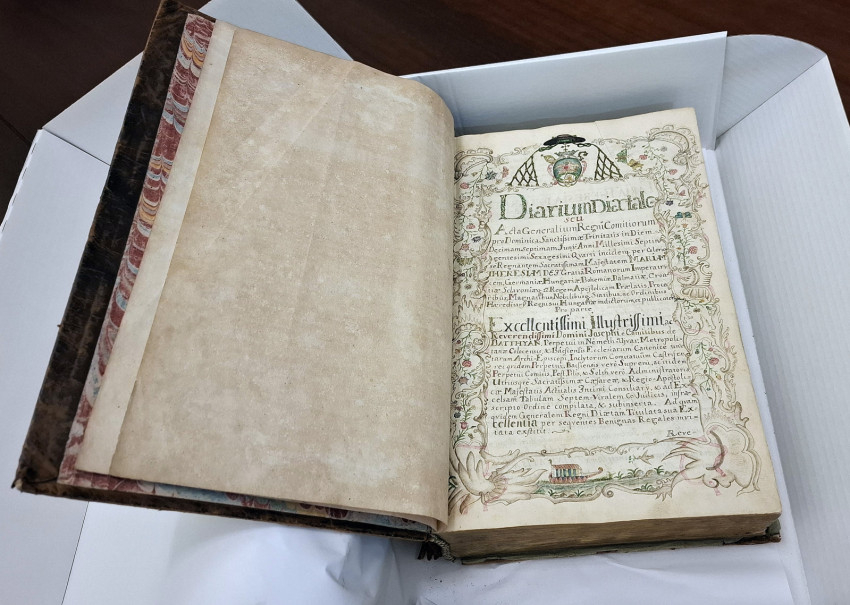 Diarium Diætale
seu
Acta Generalium Regni Comitiorum
pro Dominica Sanctissimæ Trinitatis in Diem
Decimam Septimam Junij Anni Millesimi Septin
gentesimi Sexagesimi Quarti indictem, per
Regnantem Sacratissimam Majestatem MARIAM
THERESIAM DEI Gratia Romanorum Imperatri
cem, Germaniæ, Hungariæ Bohemiæ, Dalmatiæ, Croa
tiæ Sclavoniæ, & Regem Apostolicam Prælatis,
Magnatibus, Nobilibus, Statibus, ac Ordinibus
Regni sui Hungariæ indictorum, et publicorum
Pro parte
Excellentissimi Illustrissimi, ac
Reverendissimi Domini Josephi e Comitibus de
BATTHYAN, Perpetui in Németh-Ujvar, Metropoli
tanæ Colocensis, & Ecclesiarum Canonice
tarum Archi-Episcopi, Inclytorum Comitatuum Castri
ejusdem Perpetui, Supremi, ac
Perpetui Comitis, Pest, Pilis, & Solth vero Administratoris
Utriusque Sacratissimæ Cæsareæ, & Regio-Apostoli
cæ Majestatis Actualis Intimi Consiliarij, & ad Ex
celsam Tabulam Septem-Viralem Co-Judicis, infra-
scripto Ordine compilata, & subinserta. Ad quam
quidem Generalem Regni Diætam Titulata sua Ex
cellentia per sequentes Benignas Regales invi
tata exstitit
Reve-